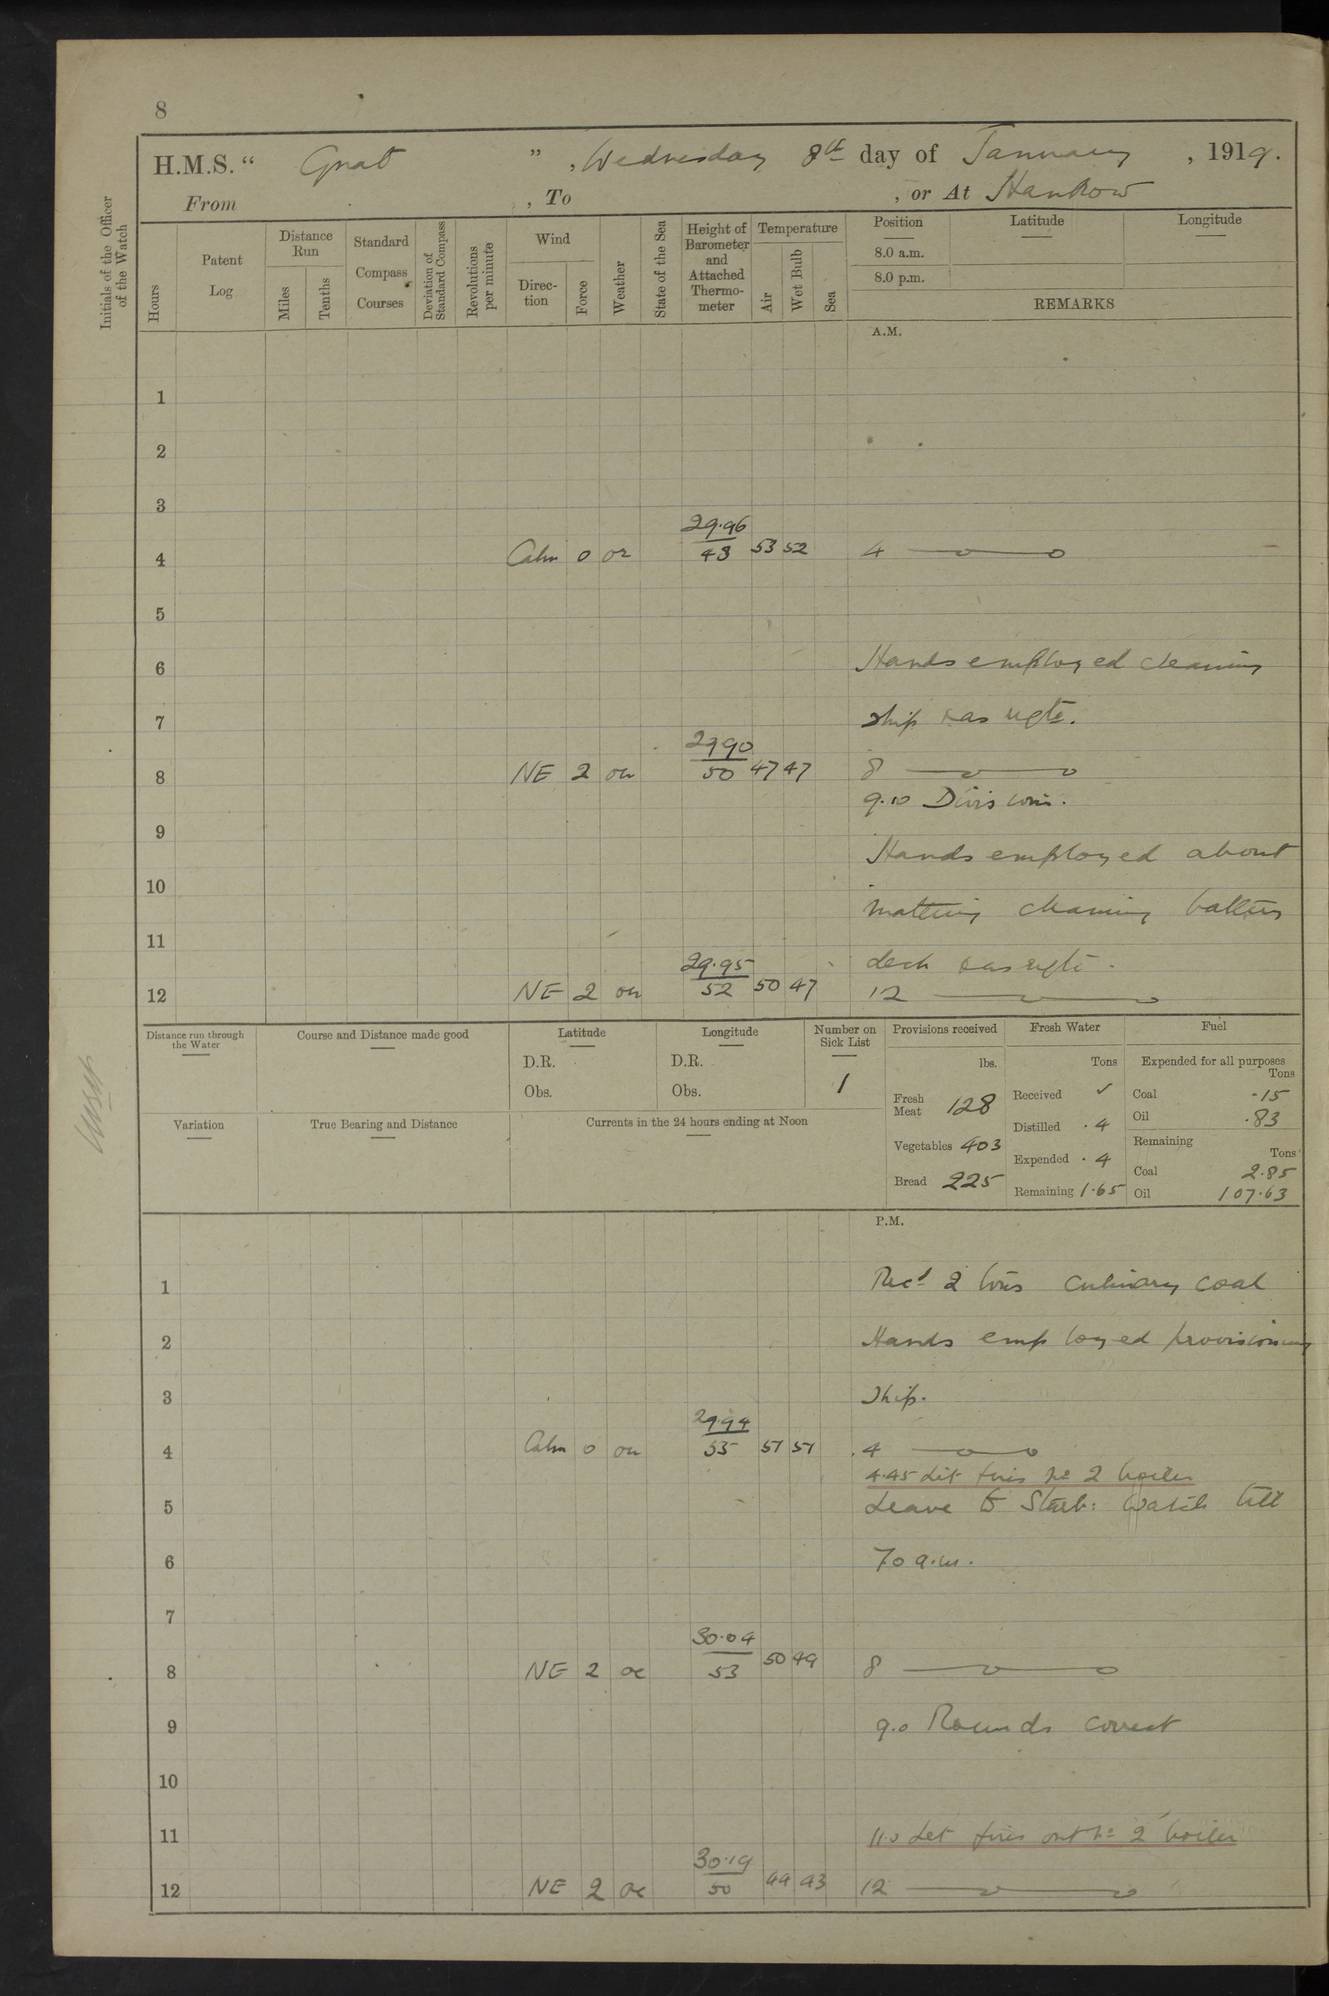 8
H.M.S. “ Gnat ” , Wednesday 8th day of January , 1919.
From , To , or At Hankow
Initials of the Officer of the Watch
Hours
Patent Log
Distance Run
Miles
Tenths
Standard Compass Courses
Deviation of Standard Compass
Revolutions per minute
Wind
Direction
Force
Weather
State of the Sea
Height of Barometer and Attached Thermometer
Temperature
Air
Wet Bulb
Sea
Position Latitude Longitude
8.0 a.m.
8.0 p.m.
REMARKS
A.M.
1
2
3
29.96
4 Calm 0 or 43 53 52 4
5
6 Hands employed cleaning
7 ship
29 90
8 NE 2 ou 50 47 47 8
9.10 Divisions.
9
Hands employed about
10
matting cleaning
11
29.95 deck
12 NE 2 ou 52 50 47 12
Distance run through the Water
Course and Distance made good
Latitude
D.R.
Obs.
Longitude
D.R.
Obs.
Number on Sick List
1
Provisions received
lbs.
Fresh Meat 128
Vegetables 403
Bread 225
Fresh Water
Tons
Received ✓
Distilled .4
Expended .4
Remaining 1.65
Fuel
Expended for all purposes
Tons
Coal .15
Oil .83
Remaining
Tons
Coal 2.85
Oil 107.63
Variation
True Bearing and Distance
Currents in the 24 hours ending at Noon
P.M.
1 Recd 2 tons culinary coal
2 Hands employed provisioning
3 Ship.
29.94
4 Calm 0 ou 55 51 51 4
4.45 Lit fires No 2 boiler
5 Leave to Starb: Watch till
6 7.0 a.m.
7
30.04
8 NE 2 oc 53 50 49 8
9 9.0 Rounds correct
10
11 11.0 Let fires out No 2 boiler
30.19
12 NE 2 oc 50 44 43 12